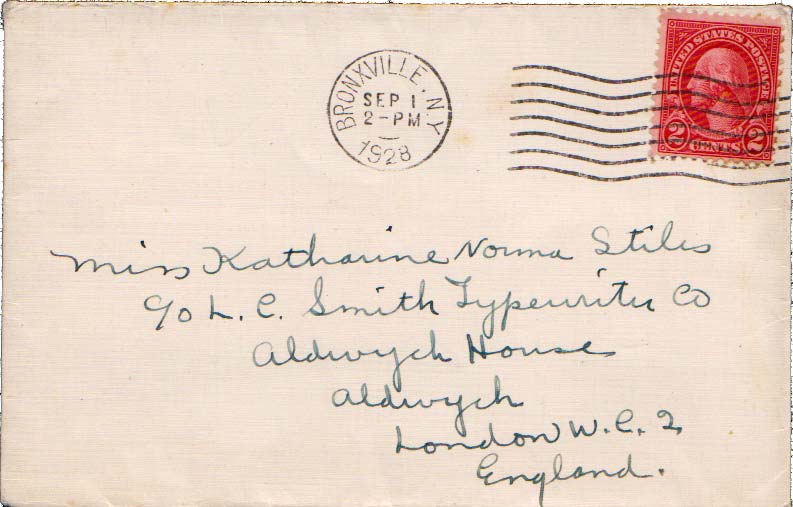 BRONXVILLE, N.Y
SEP 1
2-PM
1928
UNITED STATES POSTAGE
2 CENTS 2
Miss Katharine Norma Stiles
c/o L. C. Smith Typewriter Co
Aldwych House
Aldwych
London W. C. 2
England.